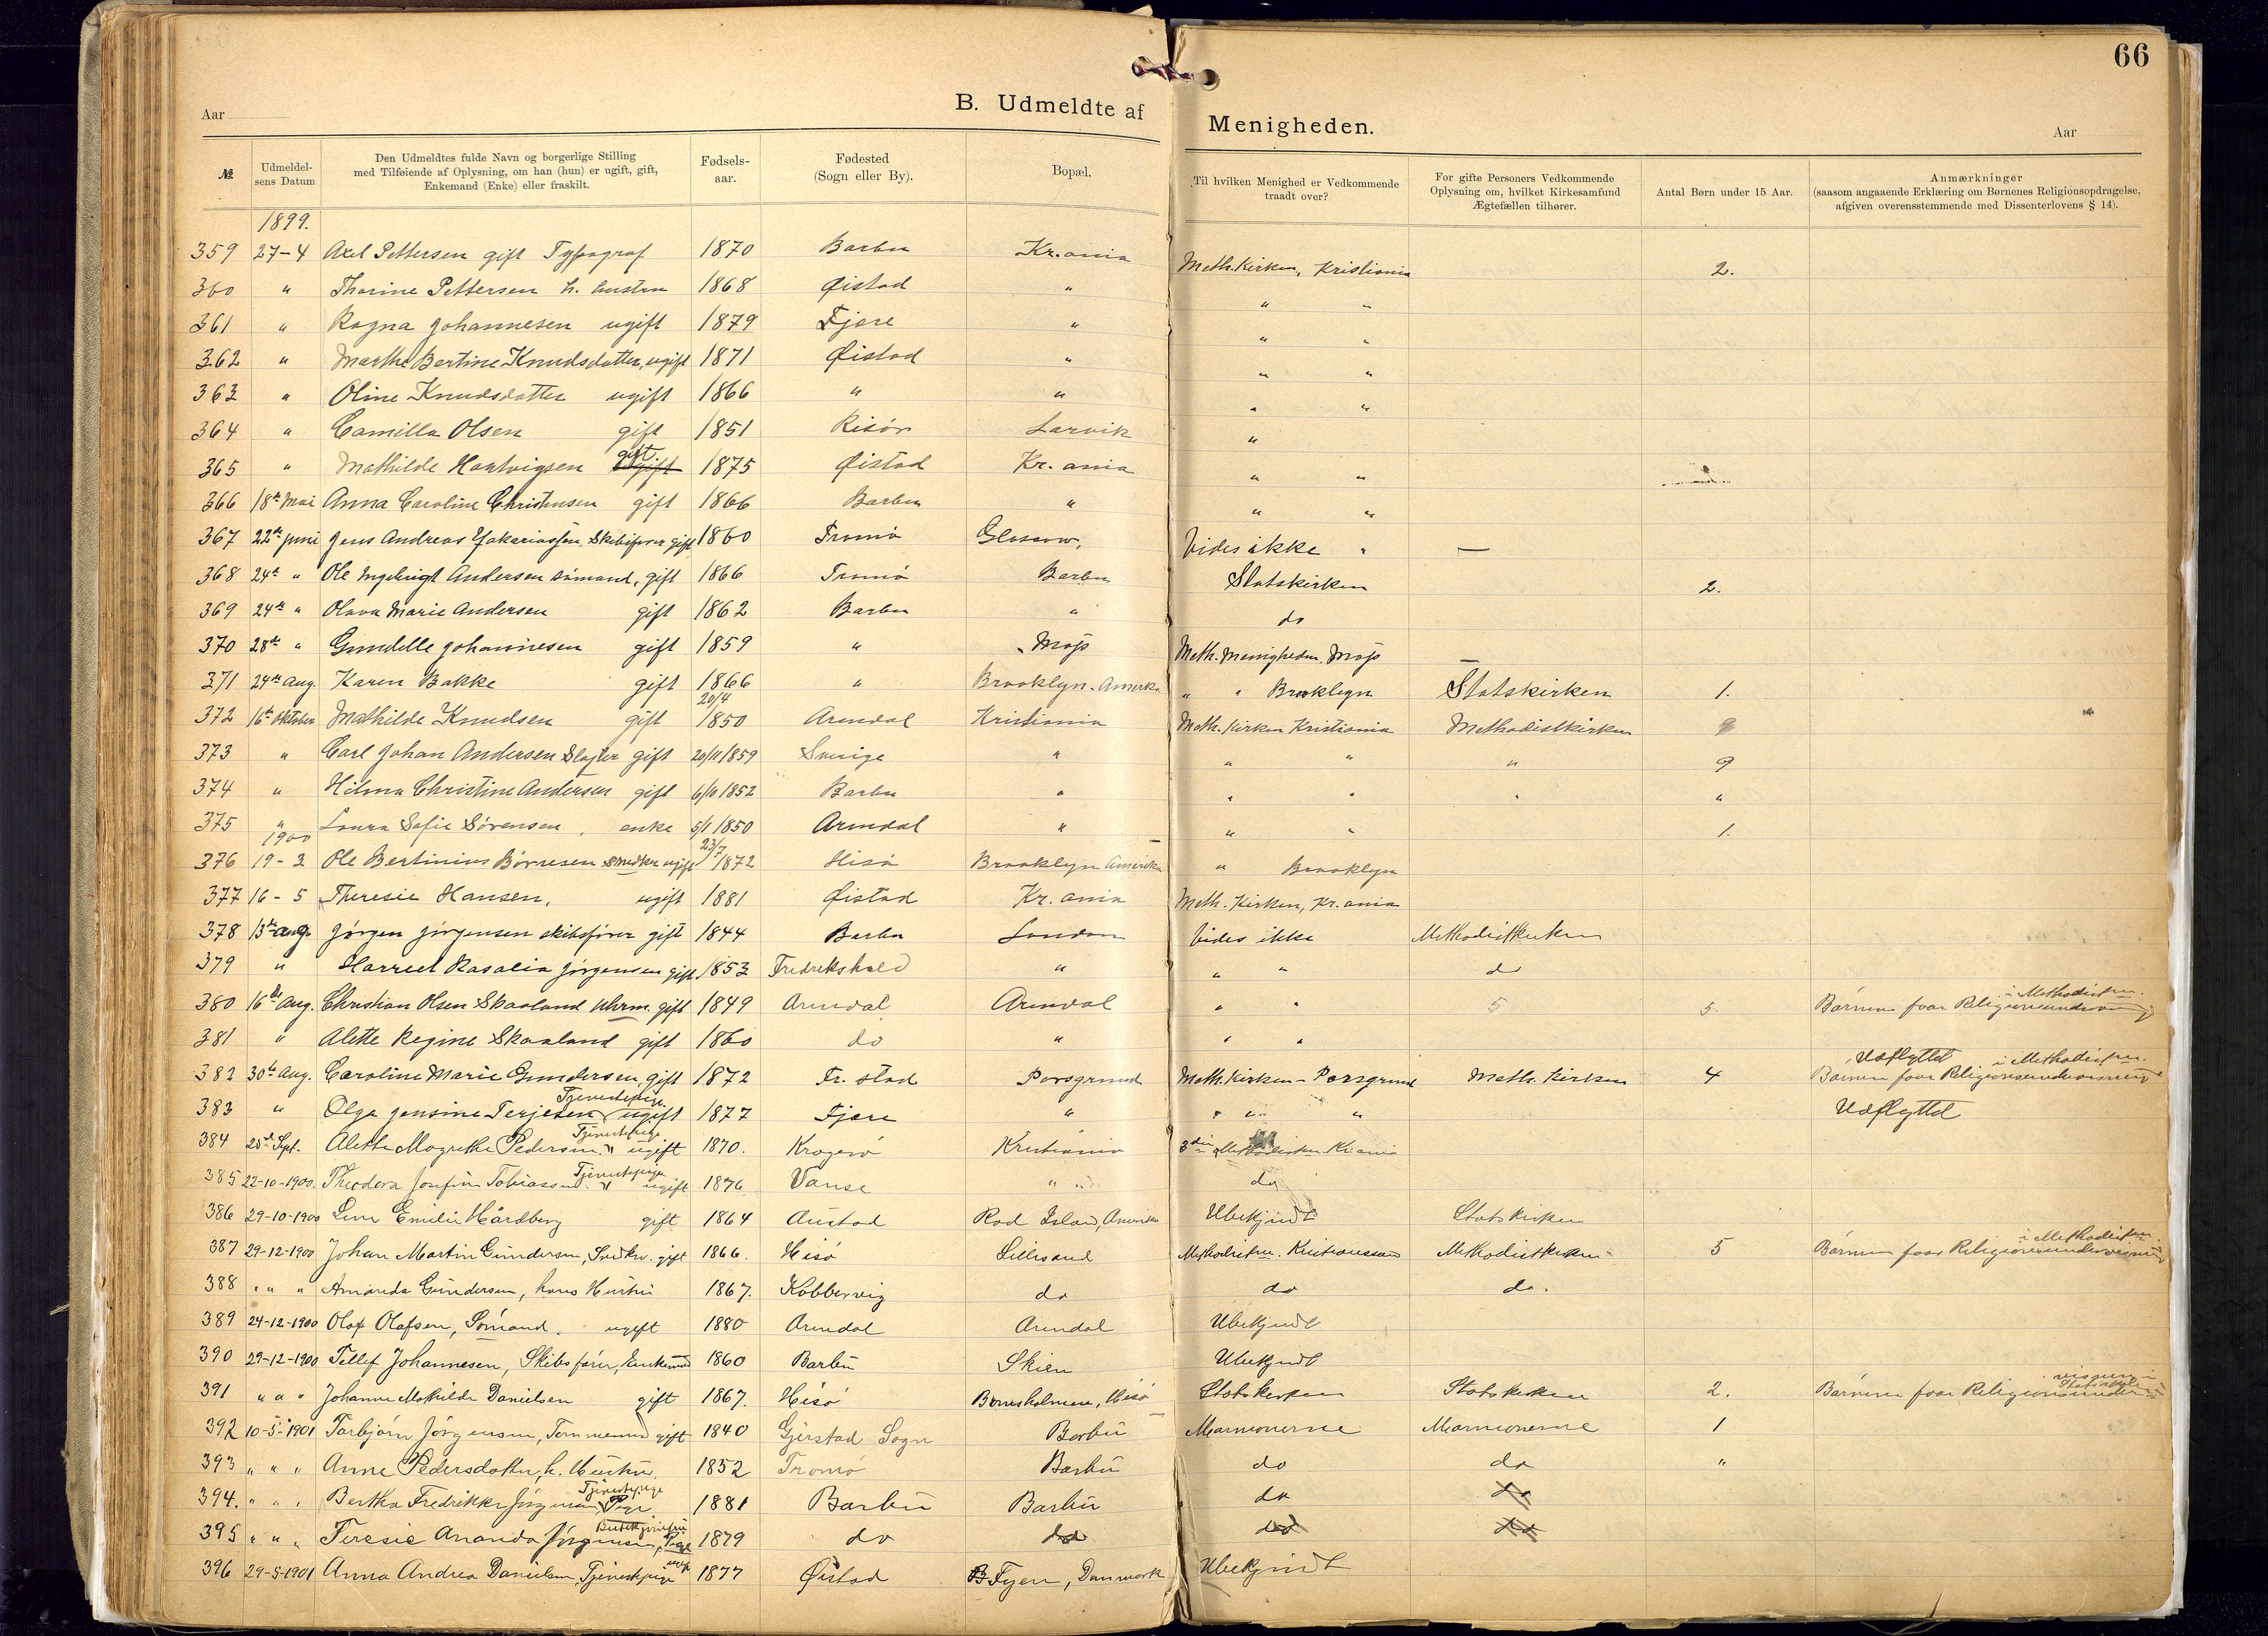 66
Aar
B. Udmeldte af Menigheden.
Aar
№ Udmeldelsens Datum Den Udmeldtes fulde Navn og borgerlige Stilling med Tilføiende af Oplysning, om han (hun) er ugift, gift, Enkemand (Enke) eller fraskilt. Fødselsaar. Fødested (Sogn eller By). Bopæl. Til hvilken Menighed er Vedkommende traadt over? For gifte Personers Vedkommende Oplysning om, hvilket Kirkesamfund Ægtefællen tilhører. Antal Børn under 15 Aar. Anmærkninger (saasom angaaende Erklæring om Børnenes Religionsopdragelse, afgiven overensstemmende med Dissenterlovens § 14).
1899.
359 27-4 Axel Pettersen gift Typograf 1870 Barbu Kr.ania Meth. Kirken, Kristiania 2.
360 " Thorine Pettersen h. hustru 1868 Øistad " " "
361 " Ragna Johannesen ugift 1879 Fjære " " "
362 " Marthe Bertine Knudsdatter, ugift 1871 Øistad " " "
363 " Oline Knudsdatter ugift 1866 " " " "
364 " Camilla Olsen gift 1851 Risør Larvik "
365 " Mathilde Hartvigsen gift 1875 Øistad Kr. ania " "
366 18de Mai Anna Caroline Christensen gift 1866 Barbu " " "
367 22de juni Jens Andreas Zakariassen, Skibsfører gift 1860 Tromø Glascow, Vides ikke " —
368 24de " Ole Ingebrigt Andersen sømand, gift 1866 Tromø Barbu Statskirken 2.
369 24de " Olava Marie Andersen gift 1862 Barbu " do
370 28de " Gundelle Johannesen gift 1859 " Moss Meth. Menigheden, Moss —
371 24de Aug. Karen Bakke gift 1866 " Brooklyn-Amerika " " Brooklyn Statskirken 1.
372 16de Oktober Mathilde Knudsen gift 20/4 1850 Arendal Kristiania Meth. Kirken Kristiania Methodistkirken
373 " Carl Johan Andersen Slagter gift 20/11 1859 Sverige " " " " 9
374 " Hilma Christine Andersen gift 1852 Barbu " " " " "
375 " Laura Sofie Sørensen, enke 5/1 1850 Arendal " " " 1.
1900
376 19-3 Ole Bertinius Børresen ugift 23/7 1872 Hisø Brooklyn Amerika " Brooklyn
377 16-5 Theresie Hansen, ugift 1881 Øistad Kr. ania Meth. Kirken, Kr. ania
378 13de aug. Jørgen Jørgensen skibsfører gift 1844 Barbu London Vides ikke Methodistkirken
379 " Harriet Rasalia Jørgensen gift 1853 Fredrikshald " " " do
380 16de Aug. Christian Olsen Skaaland Uhrm. gift 1849 Arendal Arendal " " 5 5. Børnene faar Religionsundervisning i Methodistkn.
381 " Alette Regine Skaaland gift 1860 do " " "
382 30te Aug. Caroline Marie Gundersen, gift 1872 Fr. stad Porsgrund Meth. Kirken - Porsgrund Meth. Kirken 4 Udflyttet Børnene faar Religionsundervisning i Methodistkn.
383 " Olga Jensine Terjesen Tjenestepige ugift 1877 Fjære " " " " Udflyttet
384 25de Sept. Alette Magrethe Pedersen Tjenestepige ugift 1870. Kragerø Kristiania 3die Methodistkn. Kr.ania
385 22-10-1900. Theodora Josefine Tobiassen Tjenestepige ugift 1876 Vanse " " do
386 29-10-1900 Lene Emilie Hårdberg gift 1864 Austad Rod Island, Amerika Ubekjendt Statskirken
387 29-12-1900 Johan Martin Gundersen, Snedker. gift 1866. Hisø Lillesand Methodistkn. Kristianssand Methodistkirken 5 Børnene faar Religionsundervisning i Methodistkn.
388 " " " Amanda Gundersen, hans Hustru 1867. Kobbervig do do do.
389 24-12-1900 Olaf Olafsen, Sømand. ugift 1880 Arendal Arendal Ubekjendt
390 29-12-1900 Tellef Johannesen, Skibsfører, Enkemand 1860 Barbu Skien Ubekjendt
391 " " " Johanne Mathilde Danielsen gift 1867. Hisø Børresholmene, Hisø Statskirken Statskirken 2. Børnene faar Religionsundervisning i Statskirken
392 10-5-1901 Torbjørn Jørgensen, Tømmermand gift 1840 Gjerstad Sogn Barbu Mormonerne Mormonerne 1
393 " " " Anne Pedersdatter, h. Hustru. 1852 Tromø Barbu do do "
394. " " " Bertha Fredrikke Jørgensen, Tjenestepige 1881 Barbu Barbu do do
395 " " " Teresie Amanda Jørgensen, 1879 do do do do
396 29-5-1901 Anna Andrea Danielsen, Tjenestepige ugift 1877 Øistad Fyen, Danmark Ubekjendt